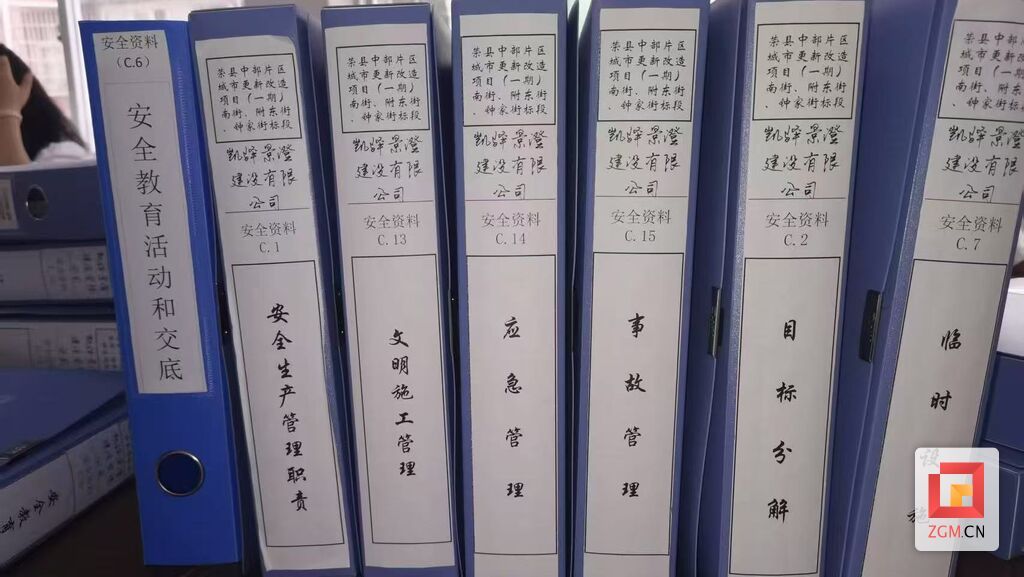 安全资料
（C.6）
安全教育活动和交底
荣县中部片区
城市更新改造
项目（一期）
南街、附东街
、钟家街标段
凯辉景澄
建设有限
公司
安全资料
C.1
安全生产管理职责
荣县中部片区
城市更新改造
项目（一期）
南街、附东街
、钟家街标段
凯辉景澄
建设有限
公司
安全资料
C.13
文明施工管理
荣县中部片区
城市更新改造
项目（一期）
南街、附东街
、钟家街标段
凯辉景澄
建设有限
公司
安全资料
C.14
应急管理
荣县中部片区
城市更新改造
项目（一期）
南街、附东街
、钟家街标段
凯辉景澄
建设有限
公司
安全资料
C.15
事故管理
荣县中部片区
城市更新改造
项目（一期）
南街、附东街
、钟家街标段
凯辉景澄
建设有限
公司
安全资料
C.2
目标分解
荣县中部片区
城市更新改造
项目（一期）
南街、附东街
、钟家街标段
凯辉景澄
建设有限
公司
安全资料
C.7
临时设施
安全教育
ZGM.CN